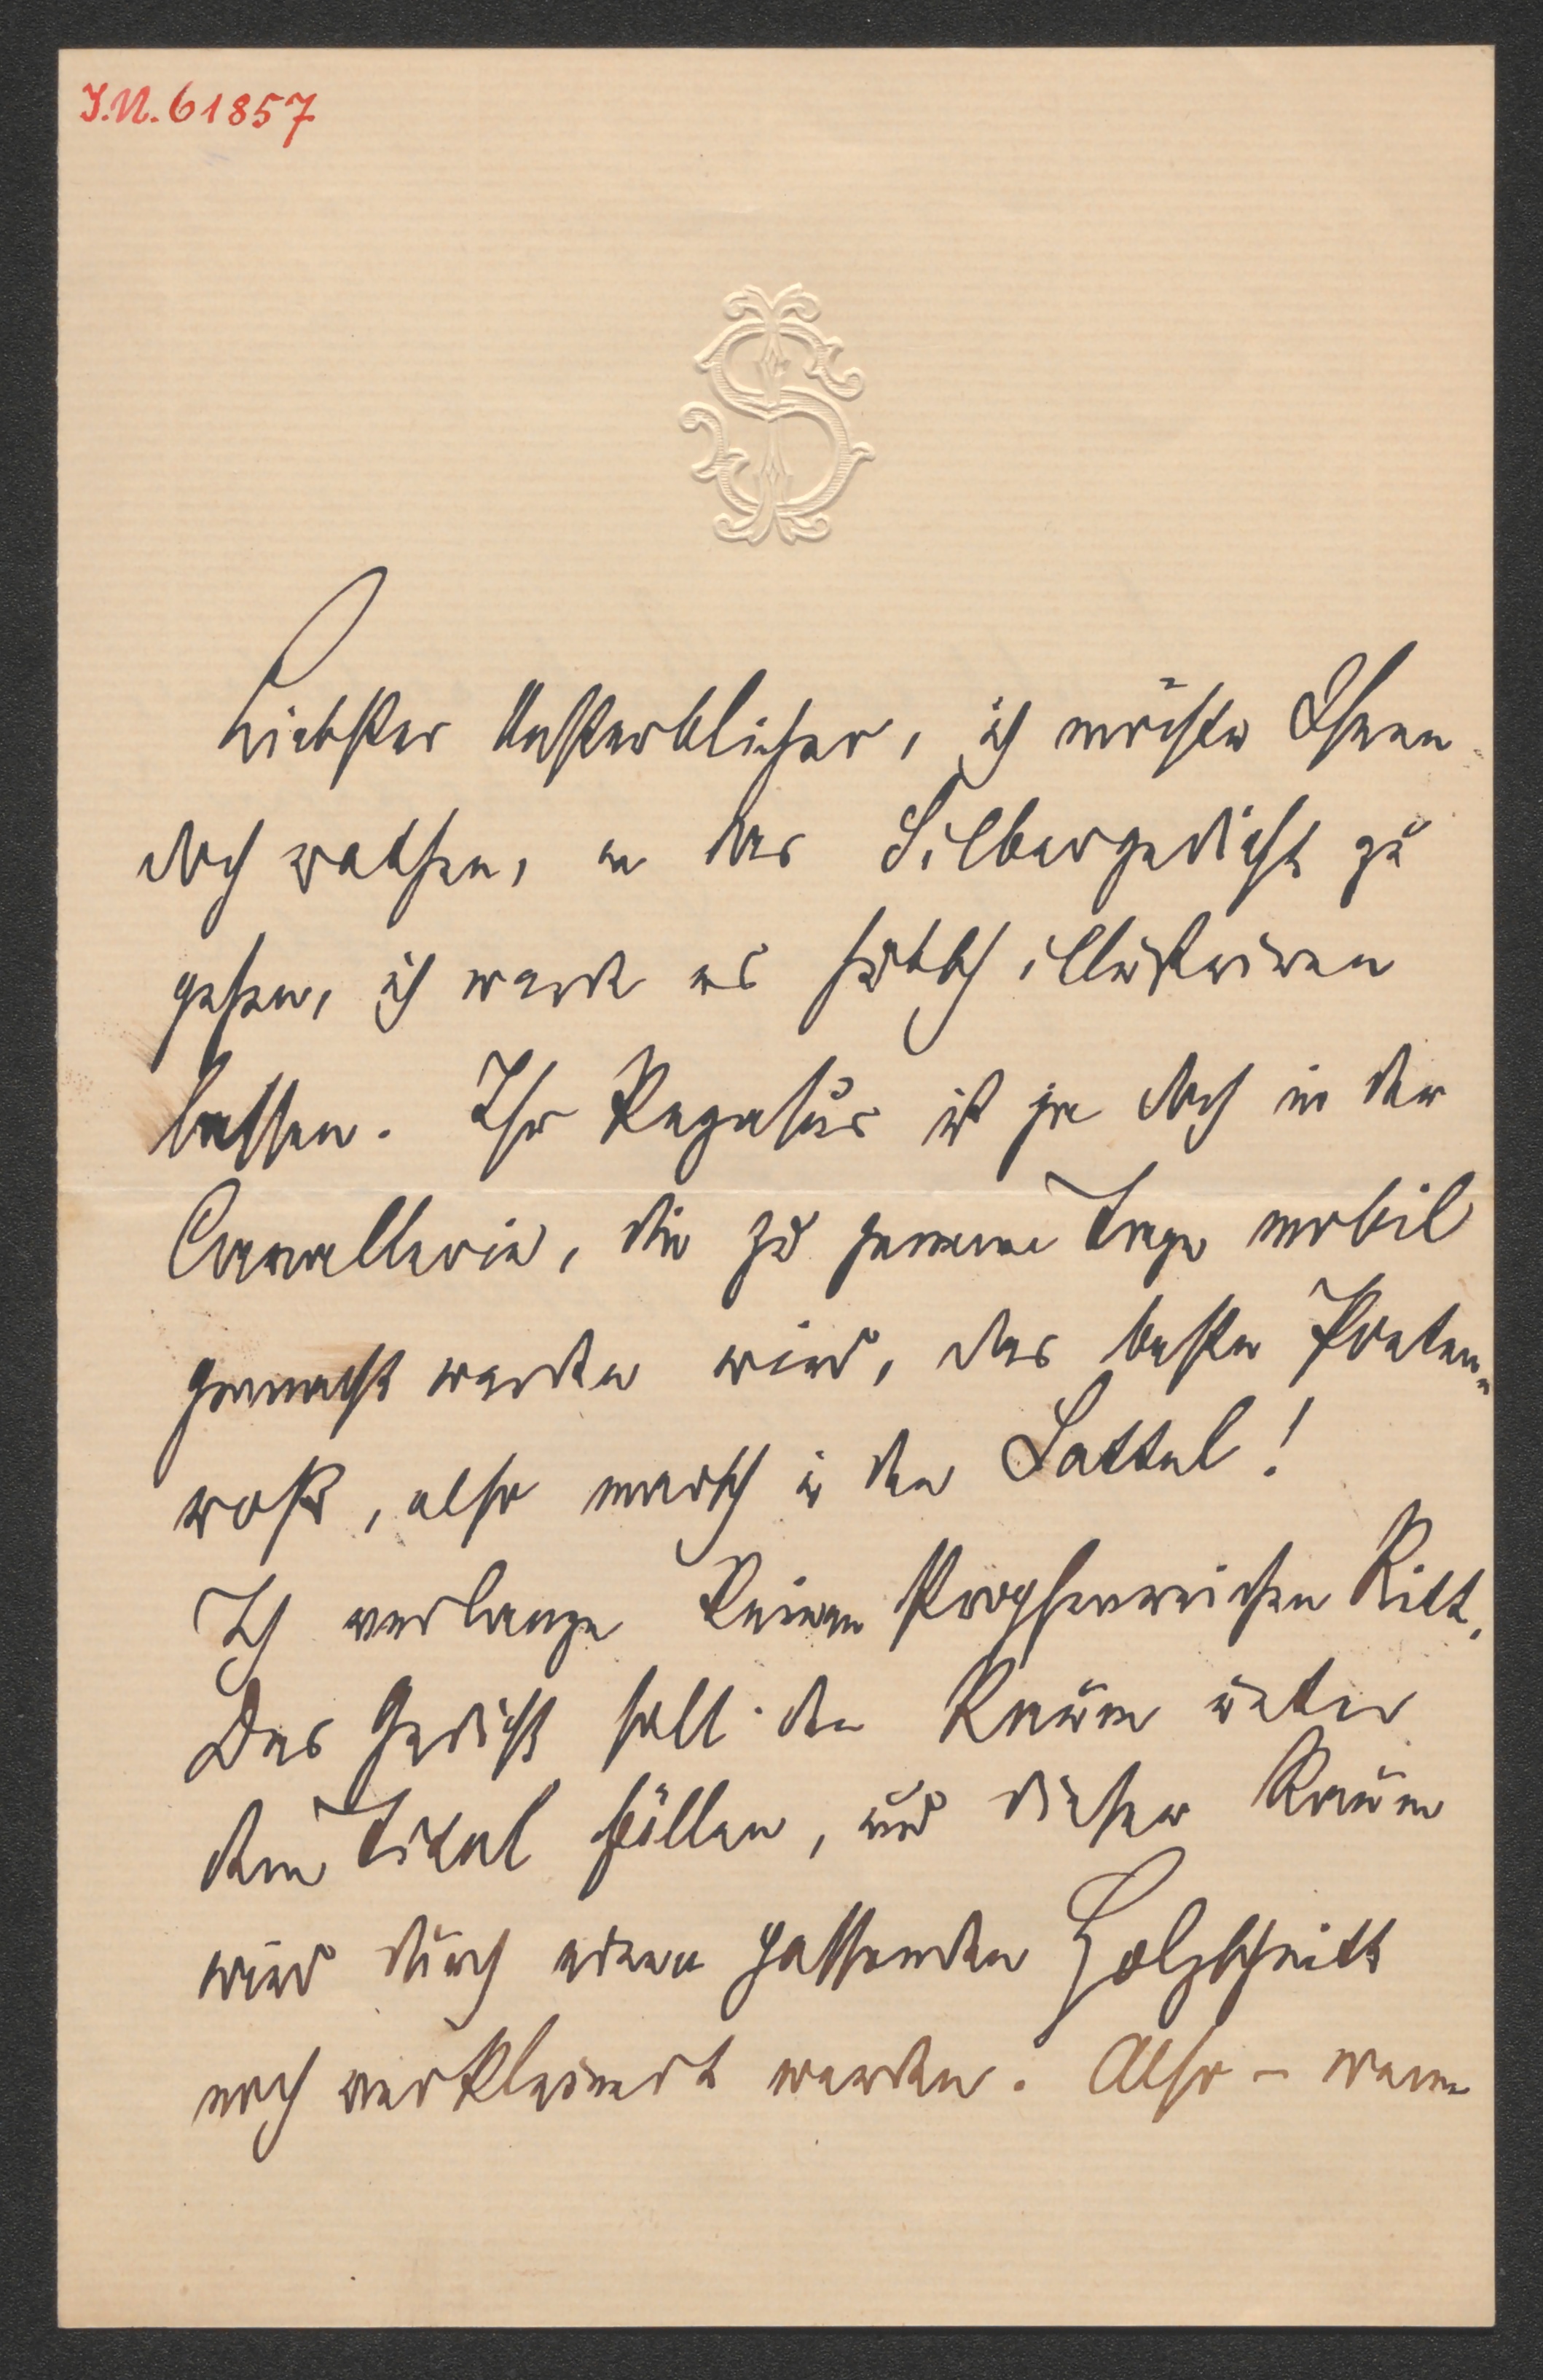 I.N. 61857
Liebster Unsterblicher, ich möchte Ihnen
doch rathen, an das Silbergedicht zu
gehen, ich werde es hübsch illustriren
lassen. Ihr Pegasus ist ja doch in der
Cavallerie, die zu jenem Tage mobil
gemacht werden wird, das beste Poeten-
roß, also marsch in den Sattel!
Ich verlange keinen strophenreichen Ritt.
Das Gedicht soll den Raum unter
dem Titel füllen, und dieser Raum
wird durch einen passenden Holzschnitt
noch verkleinert werden. Also – wann